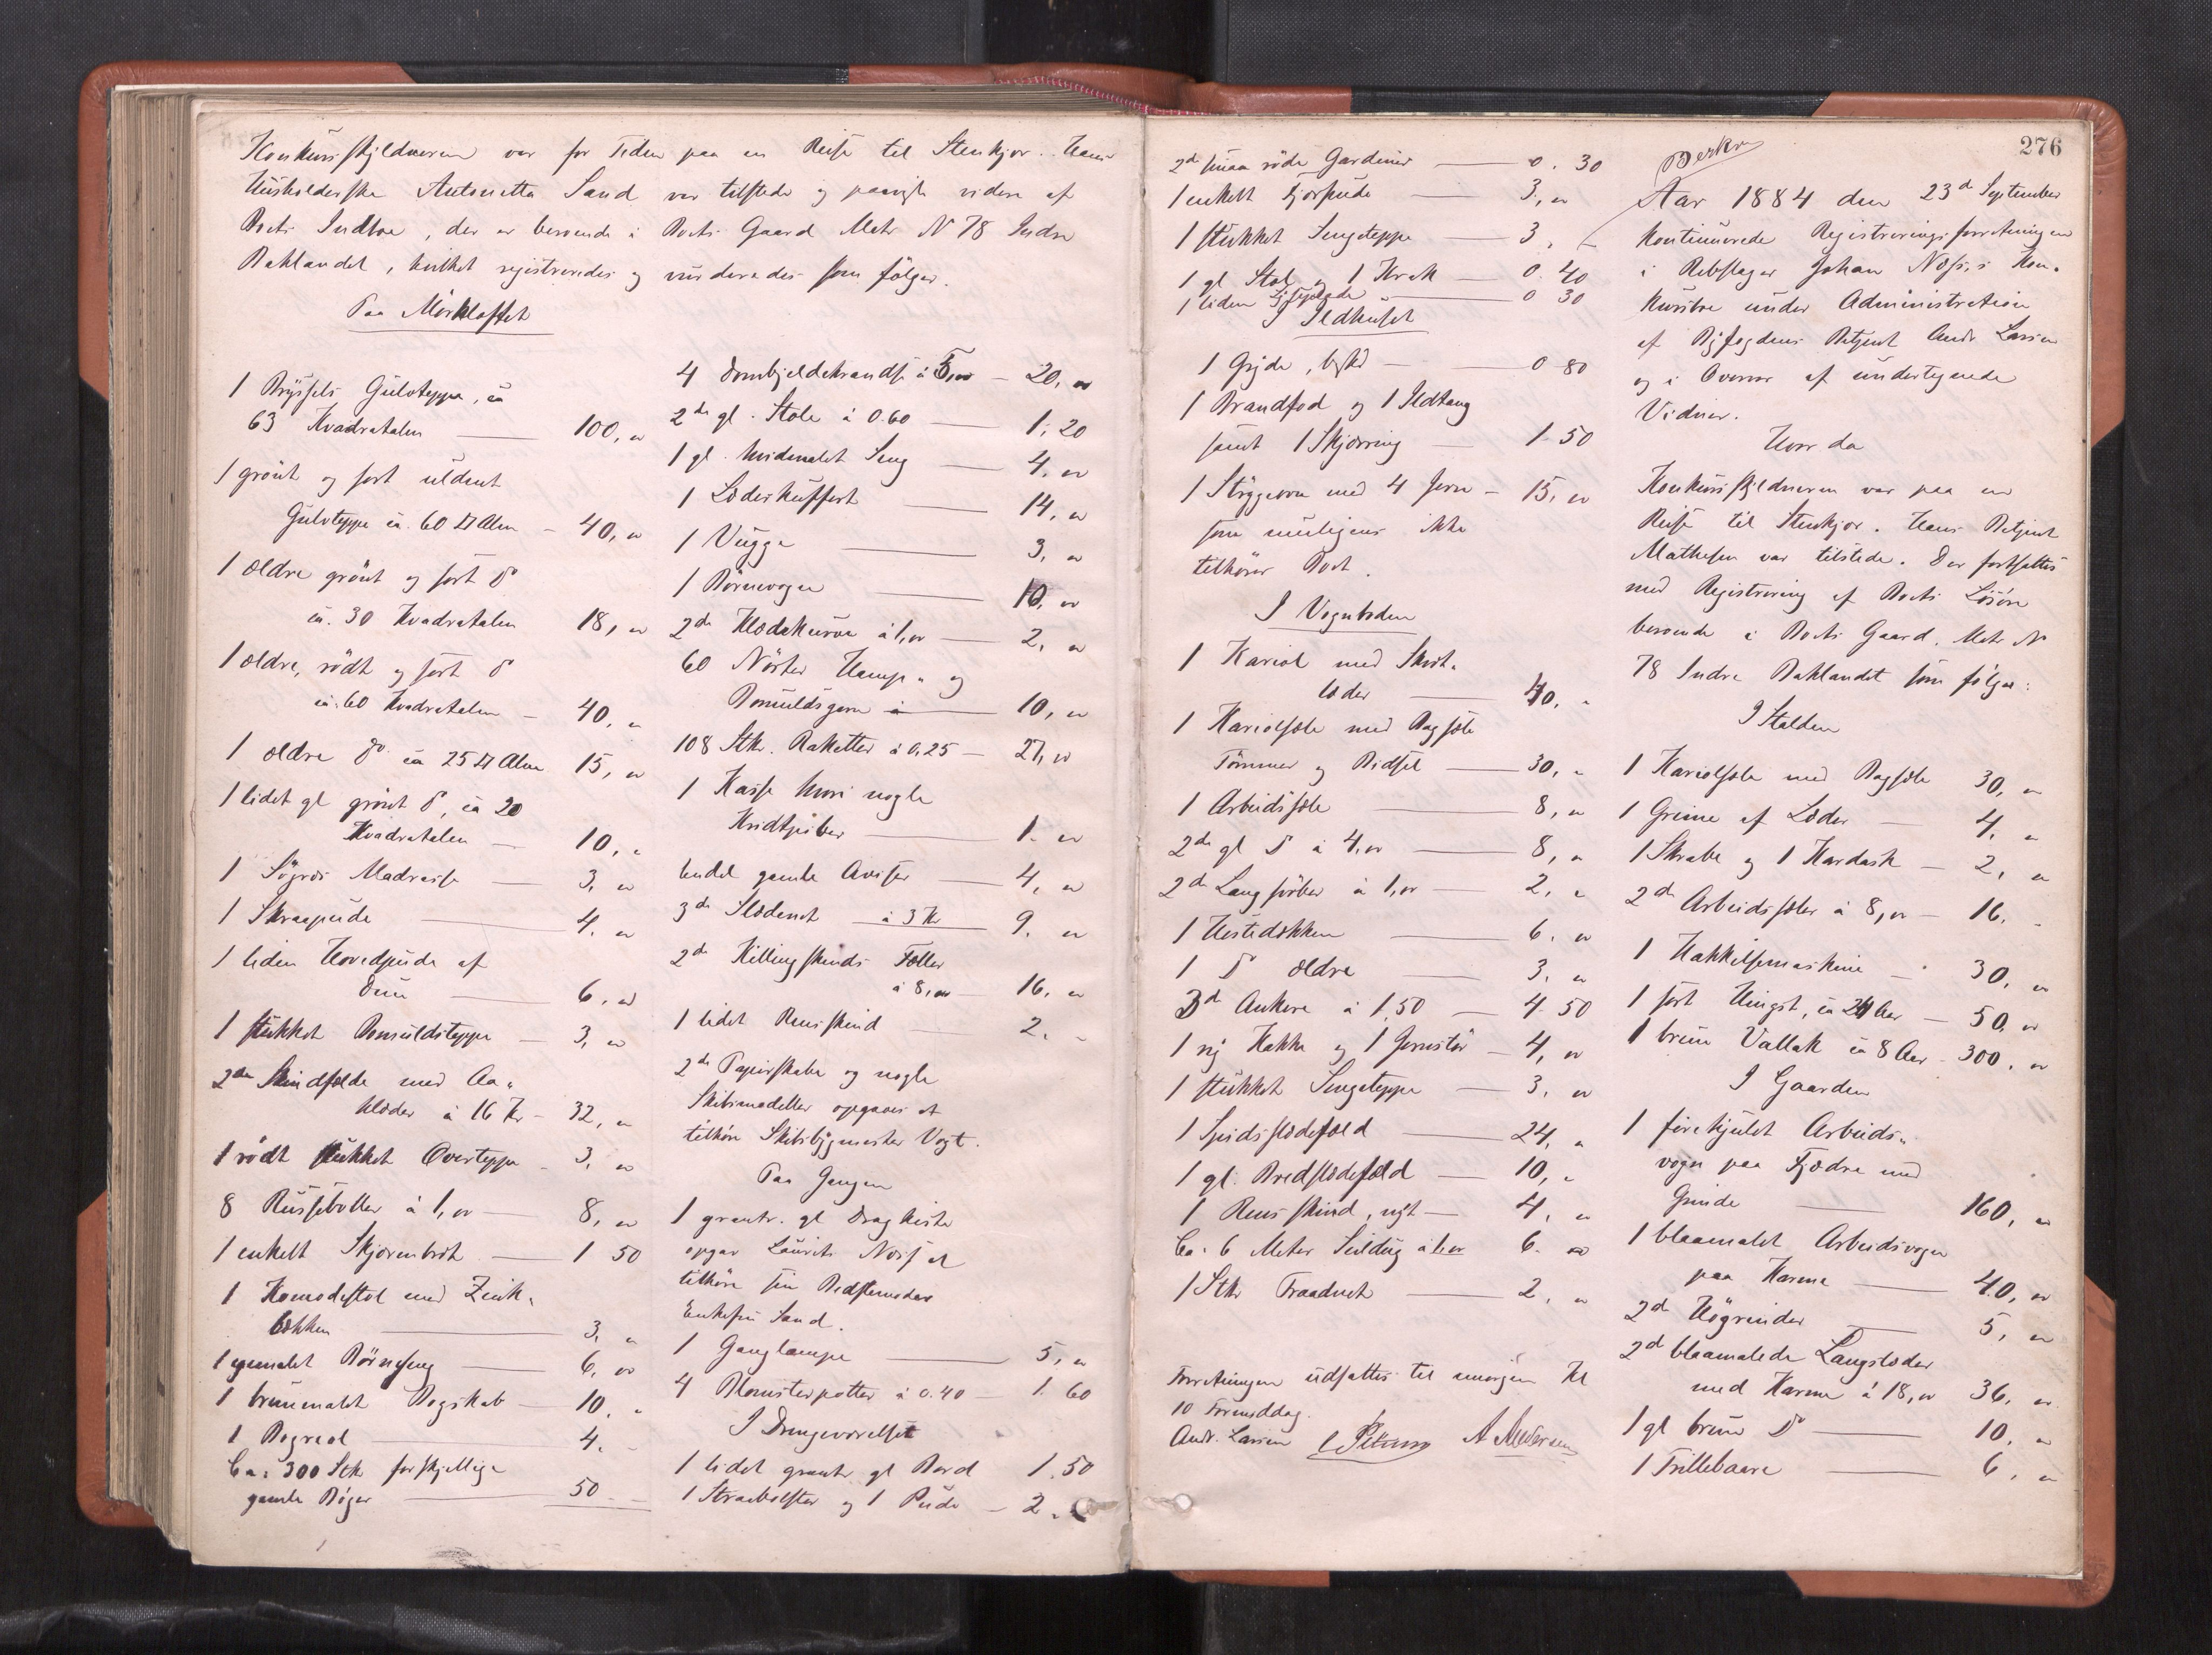 Konkursskyldneren var for Tiden paa en Reise til Stenkjær. Hans
Husholderske Antonetta Sand var tilstede og paaviste videre af
Boets Indboe, der er beroende i Boets Gaard Matr N 78 Indre
Baklandet, hvilket registreredes og vurderedes som følger.
Paa Mørkloftet
1 Bryssels Gulvteppe, ca
63 Kvadratalen 100, "
1 grønt og sort uldent
Gulvteppe ca. 60 □ Alen - 40, "
1 ældre grønt og sort do
ca. 30 Kvadratalen 18, "
1 ældre, rødt og sort do
ca. 60 Kvadratalen - 40, "
1 ældre do ca 25 □ Alen 15, "
1 lidet gl grønt do, ca 20
Kvadratalen - 10, "
1 Søgræs Madrasse - 3, "
1 Skraapude 4, "
1 liden Hovedpude af
Duun 6, "
1 stukket Bomuldsteppe - 3, "
2de Skindfælde med Aa-
klæder à 16 Kr - 32, "
1 rødt stukket Overteppe - 3, "
8 Russeboller à 1, " - 8, "
1 enkelt Skjærmbræt 1 50
1 Komodestol med Zink-
bækken 3, "
1 gulmalet Børneseng 6, "
1 brunmalet Bogskab - 10, "
1 Bogreol 4, -
Ca: 300 Stk forskjellige
gamle Bøger 50 -
4 Dombjeldekrandse à 5, " - 20, "
2de gl. Stole à 0.60 1, 20
1 gl. hvidmalet Seng 4, "
1 Læderkuffert 14, "
1 Vugge 3, "
1 Børnevogn 10, "
2de Klædekurve à 1, " - 2, "
60 Nøster Hamp- og
Bomuldsgarn 10, "
108 Stk. Raketter à 0,25 - 27, "
1 Kasse hvori nogle
Kridtpiber 1. "
Endel gamle Aviser 4, "
3de Slædenet à 3 Kr 9. "
2de Killingskinds Fæller
à 8, " - 16, "
1 lidet Rensskind 2. -
2de Papirskabe og nogle
Skibsmodeller opgaves at
tilhøre Skibsbygmester Vogt.
Paa Gangen
1 grantr. gl Dragkiste
opgav Laurits Næss at
tilhøre sin Bedstemoder
Enkefru Sand.
1 Ganglampe 5, "
4 Blomsterpotter à 0.40 - 1. 60
I Drengeværelset
1 lidet grantr gl Bord 1.50
1 Straabolster og 1 Pude - 2. "
2de smaa røde Gardiner 0. 30
1 enkelt Fjærpude 3, "
1 stukket Sengeteppe 3, -
1 gl Stol og 1 Krak 0. 40
1 liden 0 30
I Ildhuset
1 Gryde, 0 80
1 Brandfod og 1 Ildtang
samt 1 Skjærring 1. 50
1 Strygeovn med 4 Jern - 15, "
som muligens ikke
tilhører Boet.
I Vognboden
1 Kariol med Skvæt-
læder 40, "
1 Kariolsele med Bagsele
Tømmer og Bidsel 30, "
1 Arbeidssele 8, "
2de gl do à 4, " 8, "
2de Langsviber à 1, " 2, "
1 Hestedækken 6, "
1 do ældre 3. "
3de Ankere à 1,50 4. 50
1 ny Hakke og 1 Jernstør - 4, "
1 stukket Sengeteppe 3. "
1 Spidsslædefæld 24, "
1 gl. Bredslædefæld 10, "
1 Rensskind, nyt - 4, "
Ca: 6 Meter Seildug à 1, " 6. "
1 Stk Traadnet 2, "
Forretningen udsattes til imorgen Kl
10 Formiddag.
Andr. Larsen A Andersen
276
Berkr
Aar 1884 den 23de September
kontinuerede Registreringsforretningen
i Rebslager Johan Næss's Kon-
kursboe under Administration
af Byfogdens Betjent Andr Larsen
og i Overvær af undertegnede
Vidner.
Hvor da
Konkursskyldneren var paa en
Reise til Stenkjær. Hans Betjent
Mathesen var tilstede. Der fortsattes
med Registrering af Boets Løsøre
beroende i Boets Gaard, Matr No
78 Indre Baklandet som følger:
I Stalden
1 Kariolsele med Bagsele 30, "
1 Grime af Læder 4, "
1 Skrabe og 1 Kardask - 2, "
2de Arbeidsseler à 8, " - 16. -
1 Hakkelsemaskine - 30, "
1 sort Hingst, ca 24 Aar - 50, "
1 brun Vallak ca 8 Aar - 300, "
I Gaarden
1 firehjulet Arbeids-
vogn paa Fjædre med
Grinde 160, "
1 blaamalet Arbeidsvogn
paa Karme 40, "
2de Høgrinder 5, "
2de blaamalede Langslæder
med Karme à 18, " 36, "
1 gl brun do 10, "
1 Trillebaare 6, "